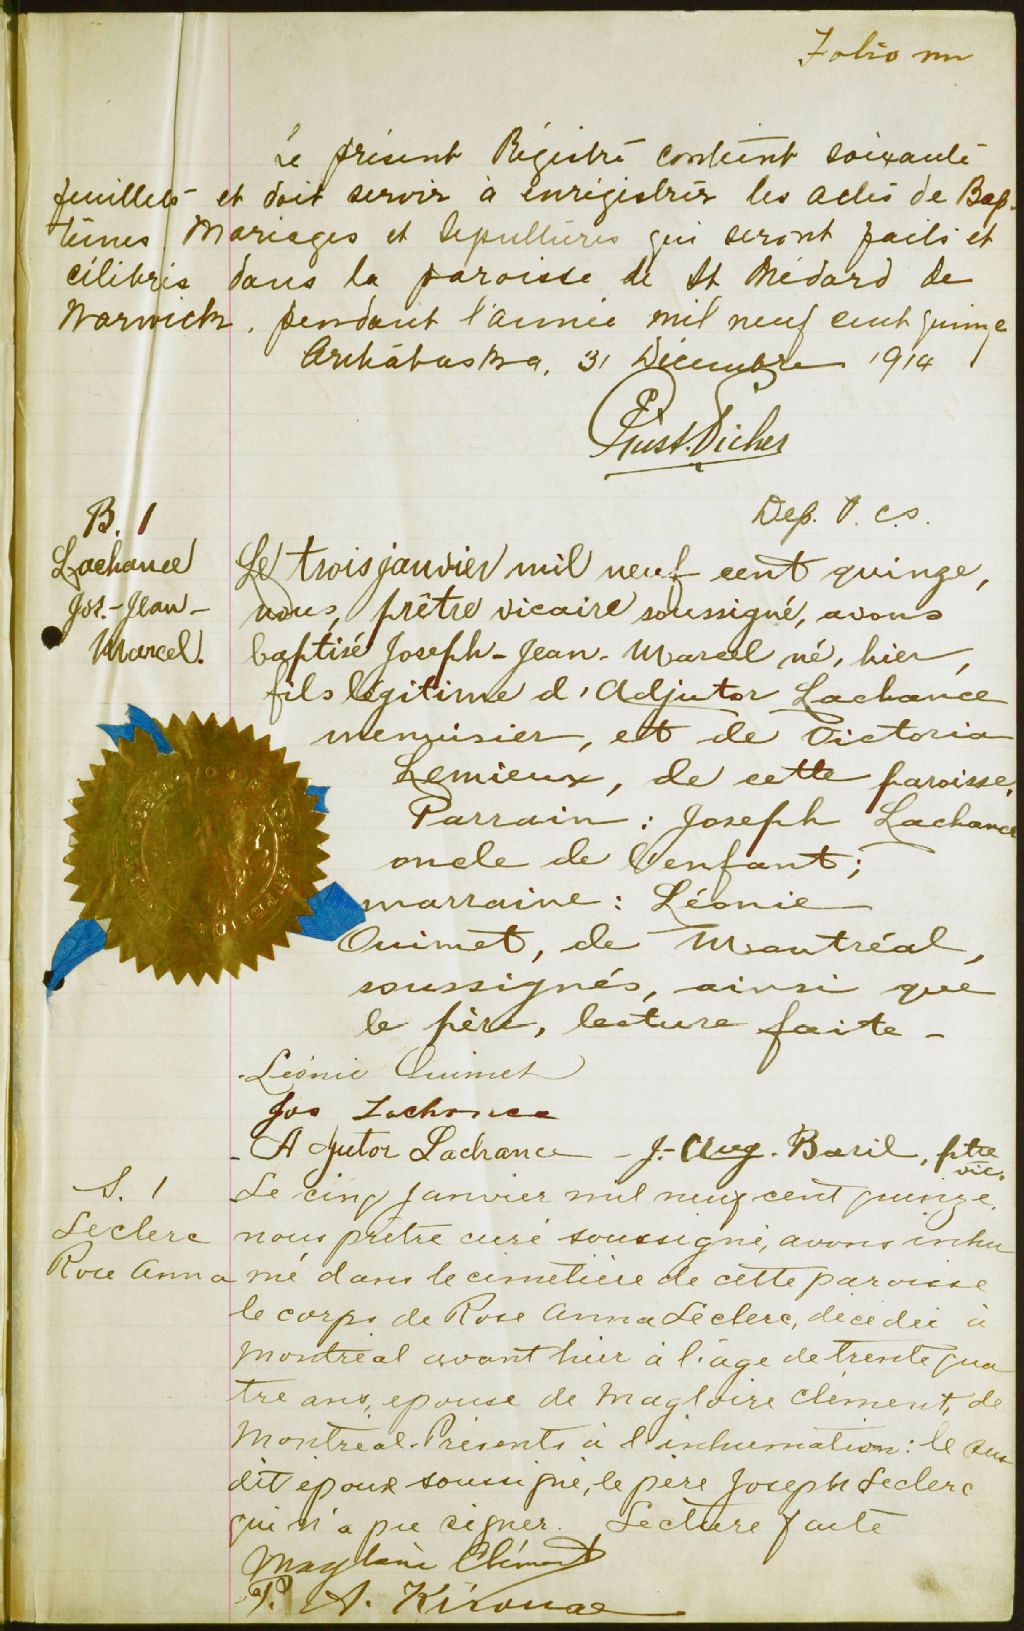 Folio un
Le présent Régistre contient soixante
feuillets et doit servir à enrégistrer les actes de Bap-
têmes Mariages et Sépultures qui seront faits et
célébrés dans la paroisse de St Médard de
Warwick, pendant l'année mil neuf cent quinze
Arthabaska, 31 Décembre 1914
Dep. P. C. S.
B. 1
Lachance
Jos.-Jean-
Marcel.
Le trois janvier mil neuf cent quinze,
nous, prêtre vicaire soussigné, avons
baptisé Joseph-Jean-Marcel né, hier,
fils légitime d'Adjutor Lachance
menuisier, et de Victoria
Lemieux, de cette paroisse.
Parrain : Joseph Lachance
oncle de l'enfant ;
marraine : Léonie
Ouimet, de Montréal,
soussignés, ainsi que
le père, lecture faite -
Léonie Ouimet
Jos Lachance
Adjutor Lachance - J.-Aug. Baril, ptre
vic.
S. 1
Leclerc
Rose Anna
Le cinq janvier mil neuf cent quinze,
nous prêtre curé soussigné, avons inhu
mé dans le cimetière de cette paroisse
le corps de Rose Anna Leclerc, décédée à
Montréal avant hier à l'âge de trente qua
tre ans, épouse de Magloire Clément, de
Montréal. Présents à l'inhumation : le sus
dit époux soussigné, le père Joseph Leclerc
qui n'a pu signer. Lecture faite
Magloire Clément
P. A. Kirouac